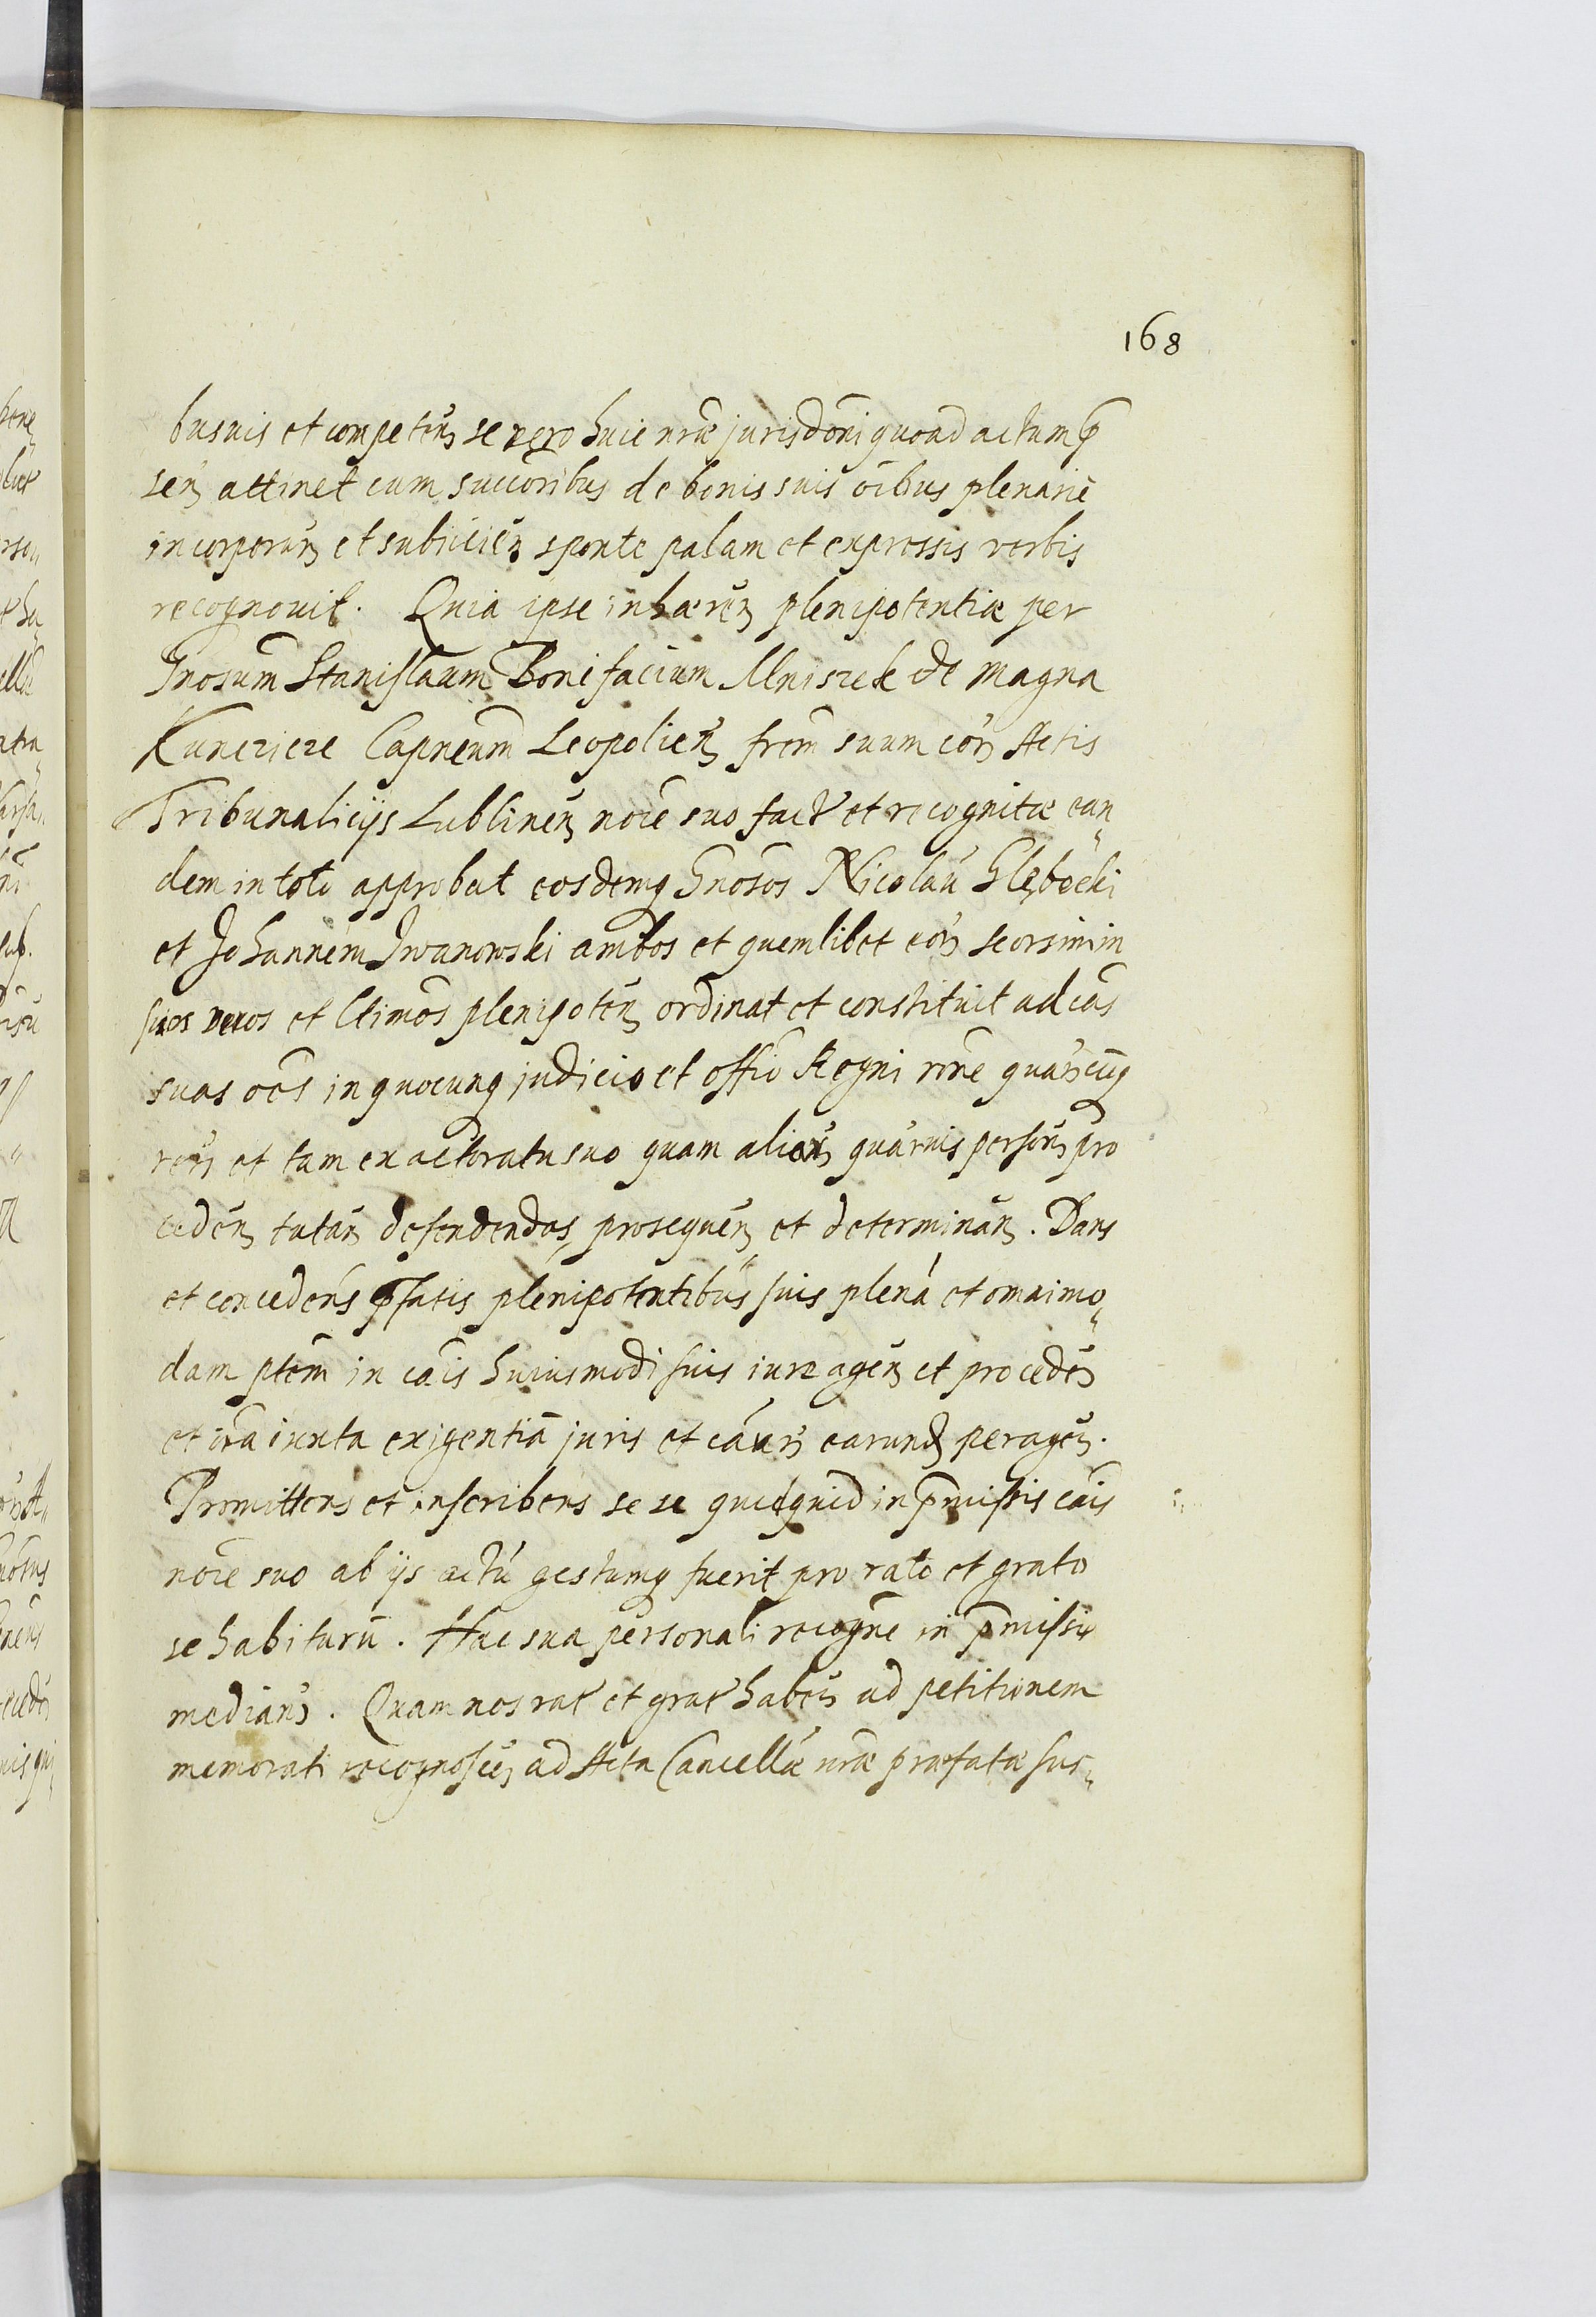 168
busuis et competen̄ se vero huic nr̄æ jurisdōni quoad actum p̄
sen̄ attinet cum succōribus de bonis suis oībus plenariè
incorporan̄ et subiicien̄ sponte palam et expressis verbis
recognovit. Quia ipse inhæren̄ plenipotentiæ per
Gnosūm Stanislaum Bonifacium Mniszek de Magna
Kunczicze Capneūm Leopolien̄ frēm suum cor̄ Actis
Tribunalicijs Lublinen̄ noīe suo fact et recognitæ ean„
dem in toto approbat eosdemq Gnōsos Nicolaū Głębocki
et Johannem Iwanowski ambos et quemlibet eor̄ seorsim in
suos veros et ltimōs plenipoten̄ ordinat et constituit ad cās
suas oēs in quocunq judicio et offīo Regni rōne quar̄cūq
rer̄ et tam ex actoratu suo quam alior̄ quar̄vis person̄ pro
ceden̄ tutan̄ defendendas, prosequen̄ et determinan̄. Dans
et concedens p̄fatis plenipotentibus suis plenā et omnimo„
dam ptēm in cāis huiusmodi suis iure agen̄ et proceden̄
et oīa iuxta exigentiā juris et cāar̄ earund peragen̄.
Promittens et inscribens se se quidquid in p̄missis cāis
noīe suo ab ijs actū gestumq fuerit pro rato et grato
se habiturū. Hac sua personali recogne in p̄missis
median̄. Quam nos rat et grat haben̄ ad petitionem
memorati recognoscen̄ ad Acta Cancellæ nr̄æ præfatæ sus„